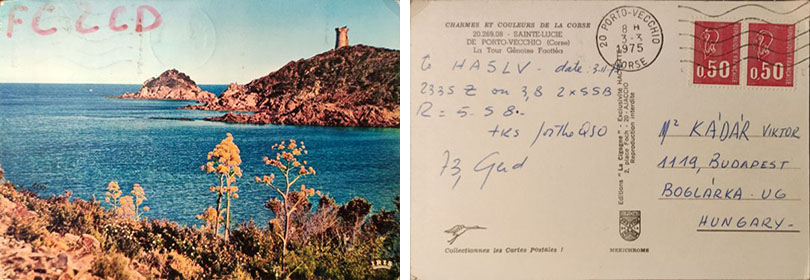 FC 2CD
IRIS
CHARMES ET COULEURS DE LA CORSE
20.269.08 - SAINTE-LUCIE
DE PORTO-VECCHIO (Corse)
La Tour Génoise Fautéa
20 PORTO-VECCHIO
8 H
3-3
1975
CORSE
0,50
0,50
to HA5LV - date
2335 Z on 3,8 2xSSB
R = 5. 5 8.
tks for the QSO
73, Gerd
Mr KÁDÁR VIKTOR
1119, BUDAPEST
BOGLÁRKA. UG
HUNGARY.-
Editions "La Cigogne" - Exclusivité HACHETTE
2, place Foch - 20 - AJACCIO
Reproduction interdite
Collectionnez les Cartes Postales !
MEXICHROME